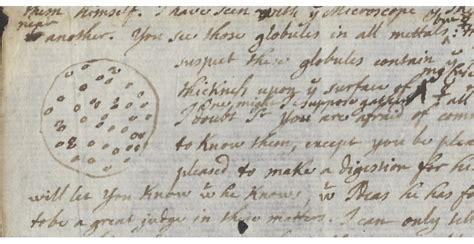 them himself. I have seen with ye Microscope
near
to another. You see those globules in all mettals:
suspect these globules contain
thickness upon ye surface of
One might suppose
I doubt Sr You are afraid of
to Know them, except you be
pleased to make a digestion for he
will let You Know wt he Knows, & wt Ideas he has
to be a great judge in these matters. I can only tell